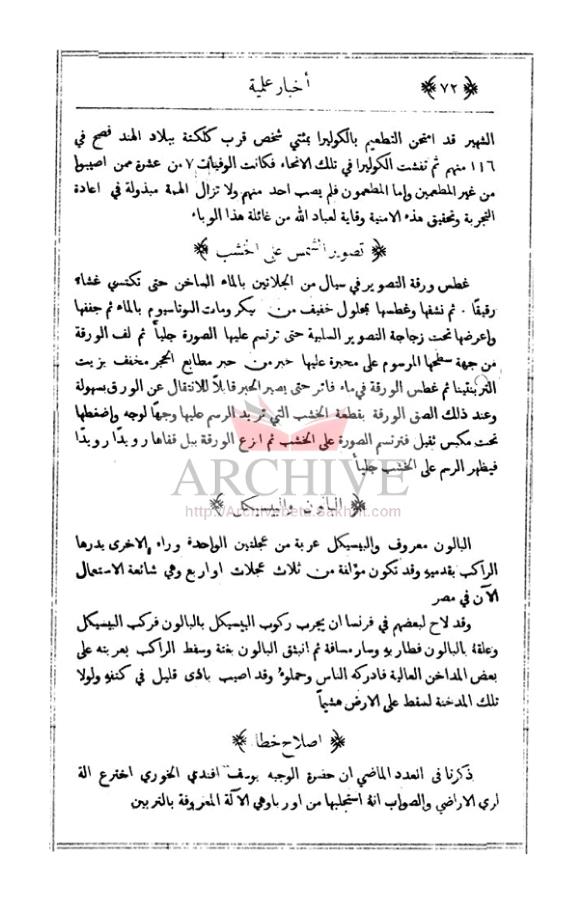 ﴿ ٧٢ ﴾
أخبار علمية
الشهير قد امتحن التطعيم بالكوليرا بمئتي شخص قرب كلكتة ببلاد الهند فصح في
١١٦ منهم ثم تفشت الكوليرا في تلك الانحاء فكانت الوفيات ٧ من عشرة ممن اصيبوا
من غير المطعمين واما المطعمون فلم يصب احد منهم ولا تزال الهمة مبذولة في اعادة
التجربة وتحقيق هذه الامنية وقاية لعباد الله من غائلة هذا الوباء
﴿ تصوير الشمس على الخشب ﴾
غطس ورقة التصوير في سيال من الجلاتين بالماء الساخن حتى تكتسي غشاء
رقيقًا ٠ ثم نشفها وغطسها بمحلول خفيف من بيكرومات البوتاسيوم بالماء ثم جففها
واعرضها تحت زجاجة التصوير السلبية حتى ترتسم عليها الصورة جلياً ثم لف الورقة
من جهة سطحها المرسوم على محبرة عليها حبر من حبر مطابع الحجر مخفف بزيت
التربنتينا ثم غطس الورقة في ماء فاتر حتى يصير الحبر قابلاً للانتقال عن الورق بسهولة
وعند ذلك الصق الورقة بقطعة الخشب التي تريد الرسم عليها وجهًا لوجه واضغطها
تحت مكبس ثقيل فترتسم الصورة على الخشب ثم انزع الورقة ببل قفاها رويدًا رويدًا
فيظهر الرسم على الخشب جلياً
ARCHIVE
http://Archivebeta.Sakhrit.com
﴿ البالون والبيسيكل ﴾
البالون معروف والبيسيكل عربة من عجلتين الواحدة وراء الاخرى يديرها
الراكب بقدميه وقد تكون مؤلفة من ثلاث عجلات او اربع وهي شائعة الاستعمال
الآن في مصر
وقد لاح لبعضهم في فرنسا ان يجرب ركوب البيسيكل بالبالون فركب البيسيكل
وعلقهُ بالبالون فطار بهِ وسار مسافة ثم انبثق البالون بغتة وسقط الراكب بعربته على
بعض المداخن العالية فادركه الناس وحملوهُ وقد اصيب باذى قليل في كتفهِ ولولا
تلك المدخنة لسقط على الارض هشيماً
﴿ اصلاح خطا ﴾
ذكرنا في العدد الماضي ان حضرة الوجيه يوسف افندي الخوري اخترع الة
لري الاراضي والصواب انهُ استجلبها من اوربا وهي الآلة المعروفة بالتربين